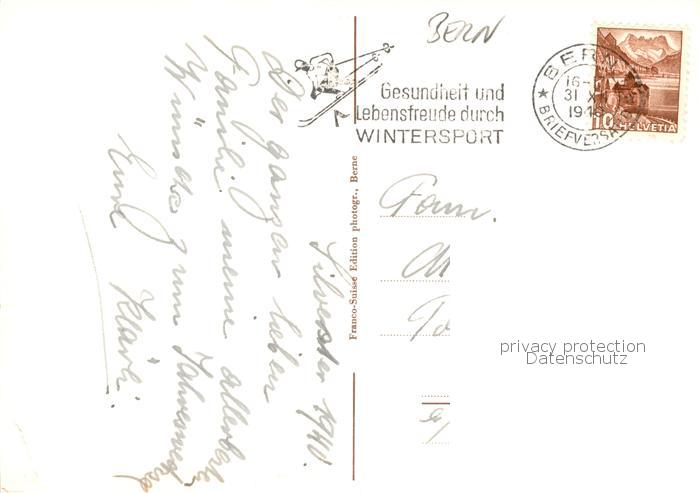 BERN
Gesundheit und
Lebensfreude durch
WINTERSPORT
BERN
16-
31 XII
194
BRIEFVERSAND
10 HELVETIA
Silvester 1940.
Der ganzen lieben
Familie meine allerbesten
Wünsche zum Jahreswechsel
Eure Klärli.
Franco-Suisse Edition photogr., Berne
Fam.
privacy protection
Datenschutz